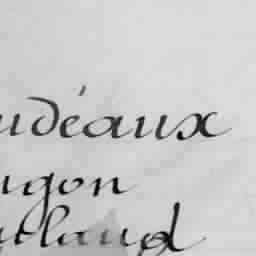 udéaux
ugon
utlaud